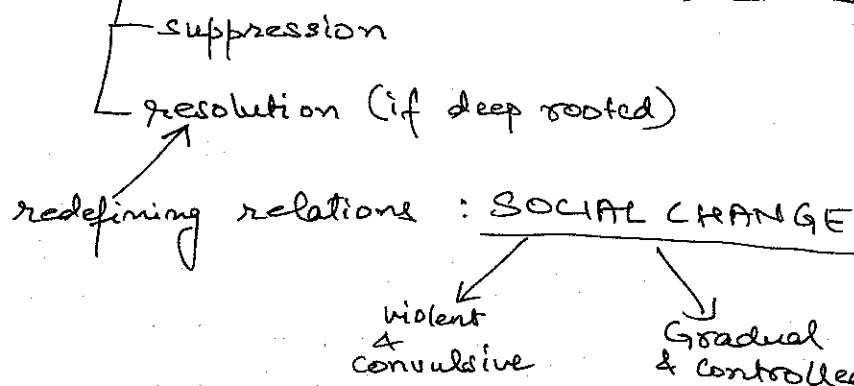 suppression
resolution (if deep rooted)
redefining relations : SOCIAL CHANGE
violent
&
convulsive
Gradual
& controlled